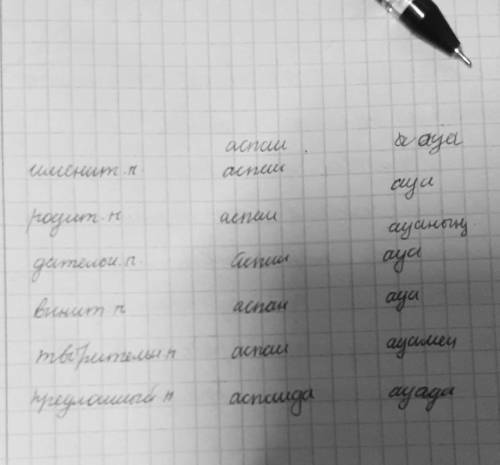 аспан ауа
именит.п аспан ауа
родит.п аспан ауаның
дательн.п. аспан ауа
винит п аспан ауа
творительн п аспан ауамен
предложный п аспанда ауада